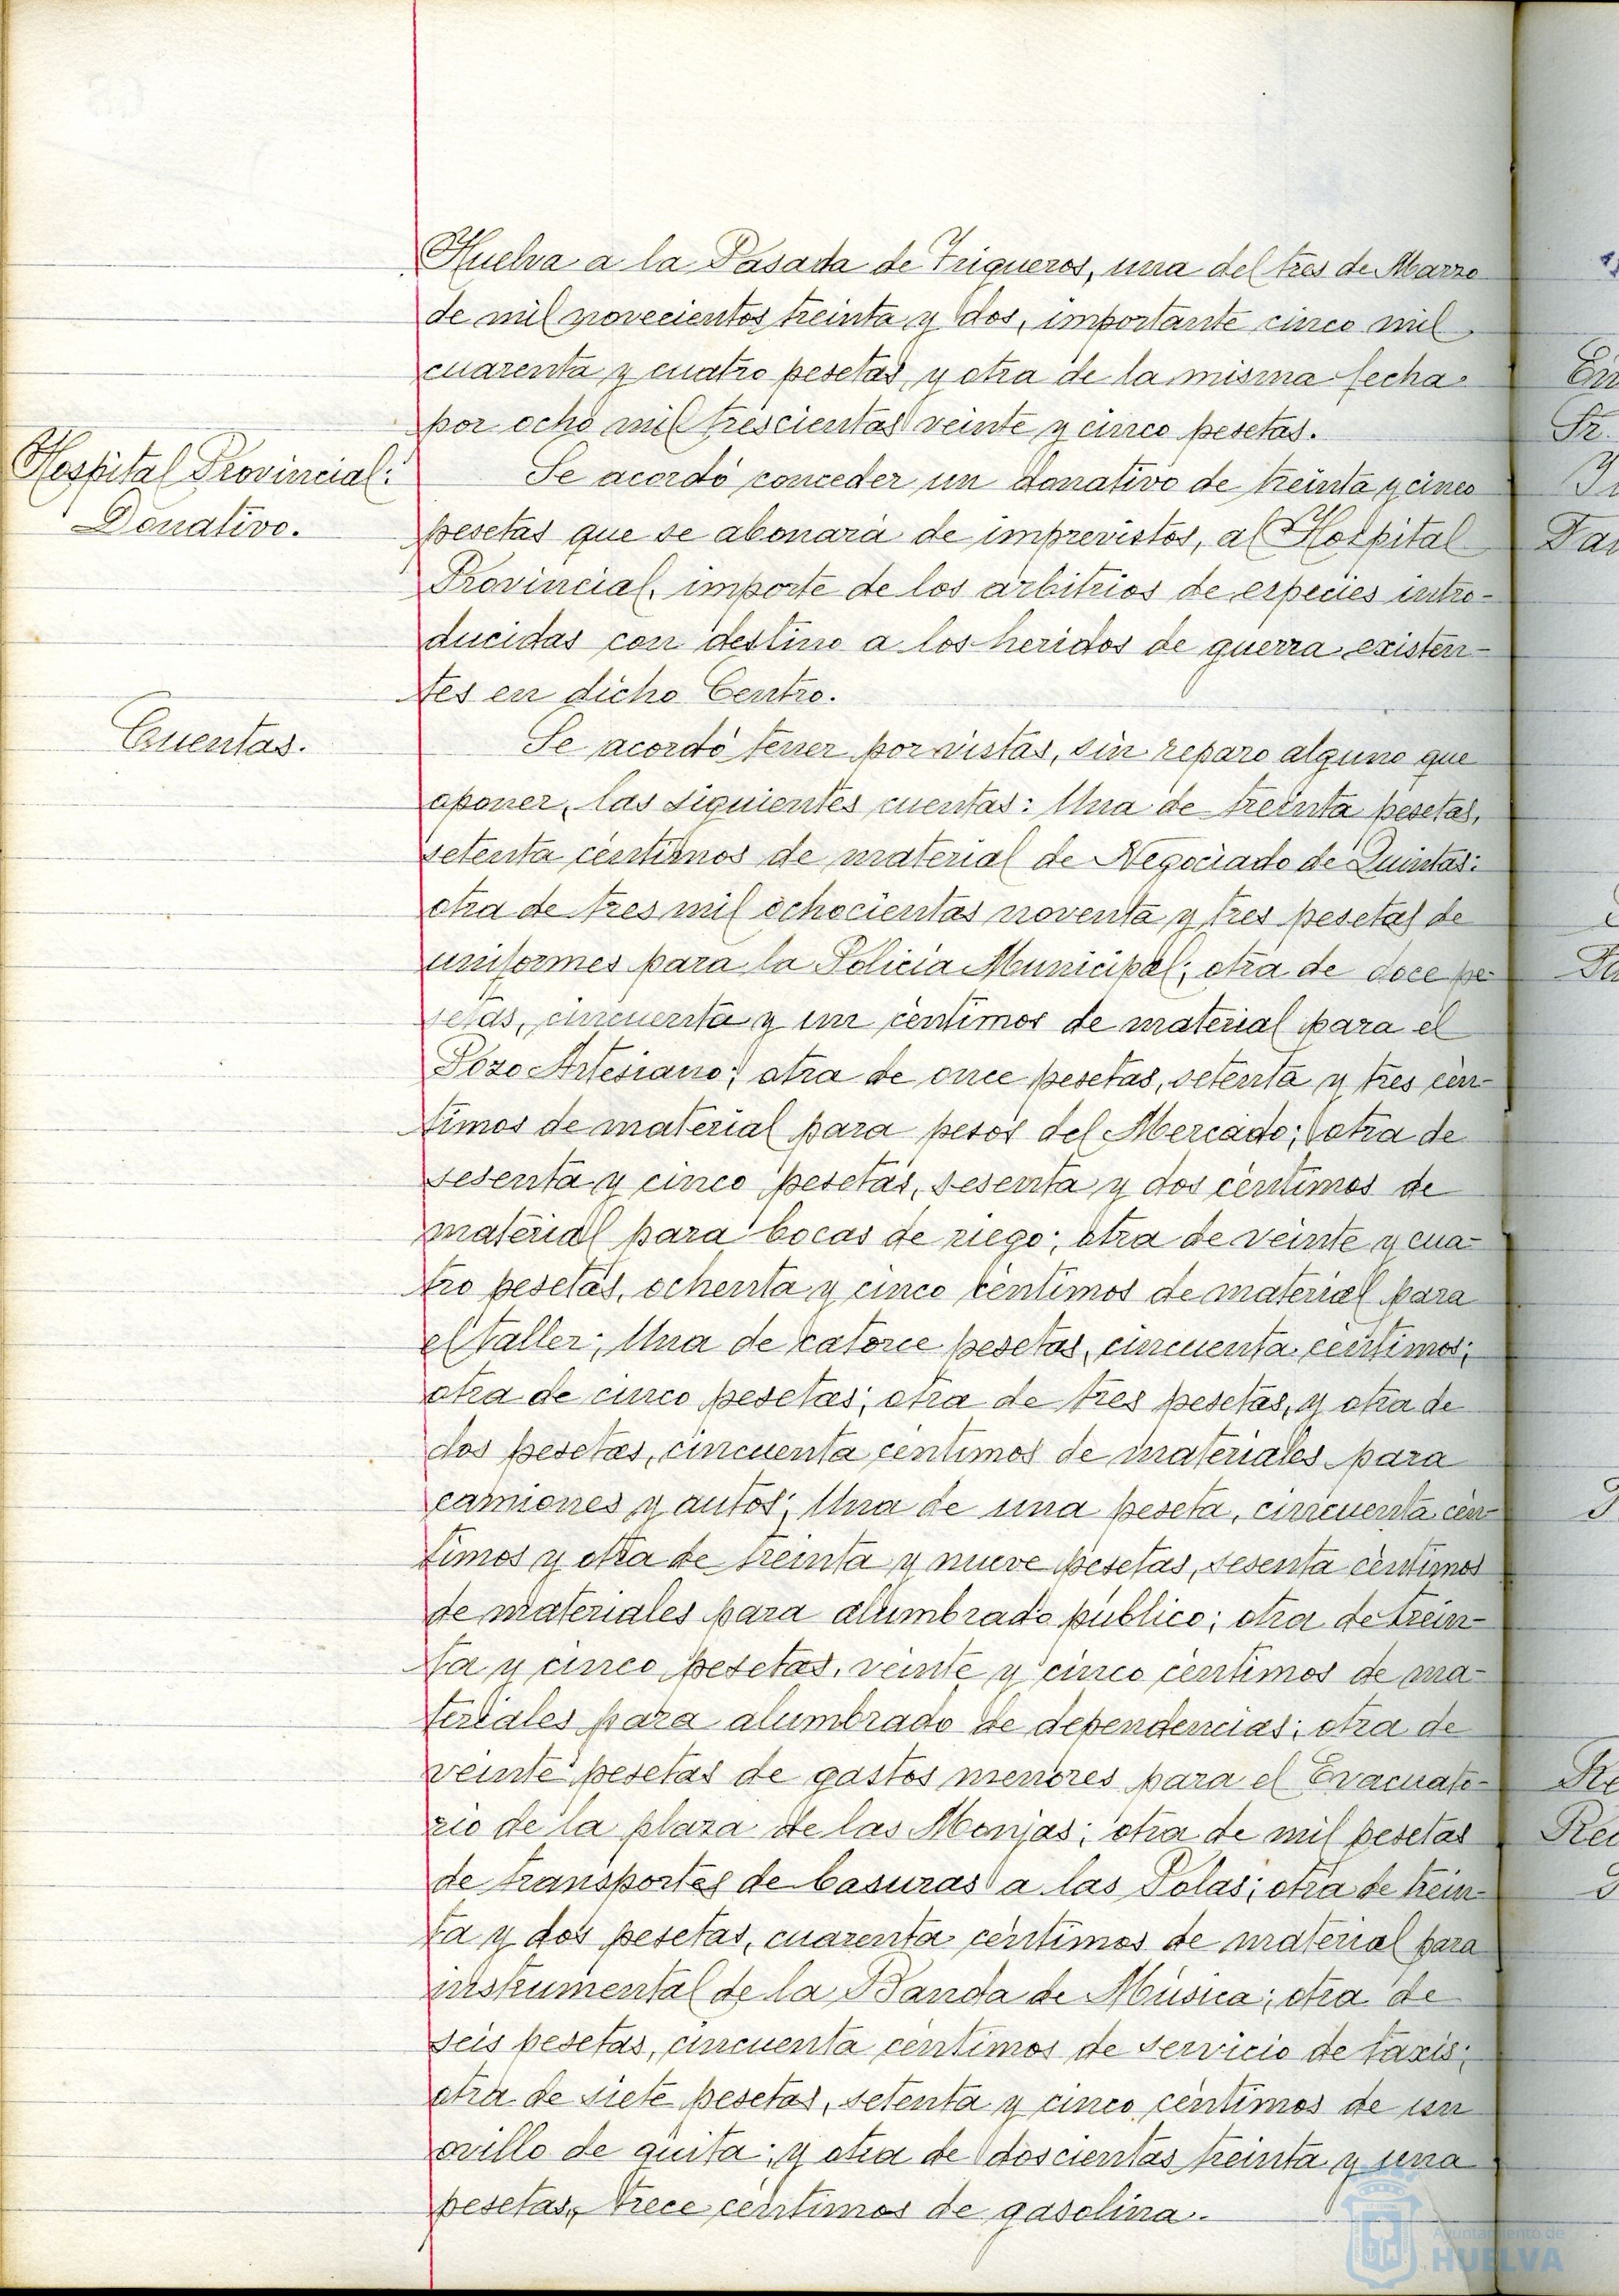 Huelva a la Pasada de Trigueros, una del tres de Marzo
de mil novecientos treinta y dos, importante cinco mil
cuarenta y cuatro pesetas, y otra de la misma fecha
por ocho mil trescientas veinte y cinco pesetas.
Hospital Provincial:
Donativo.
Se acordó conceder un donativo de treinta y cinco
pesetas que se abonará de imprevistos, al Hospital
Provincial, importe de los arbitrios de especies intro-
ducidas con destino a los heridos de guerra existen-
tes en dicho Centro.
Cuentas.
Se acordó tener por vistas, sin reparo alguno que
oponer, las siguientes cuentas: Una de treinta pesetas,
setenta céntimos de material de Negociado de Quintas:
otra de tres mil ochocientas noventa y tres pesetas de
uniformes para la Policia Municipal; otra de doce pe-
setas, cincuenta y un céntimos de material para el
Pozo Artesiano; otra de once pesetas, setenta y tres cén-
timos de material para pesos del Mercado; otra de
sesenta y cinco pesetas, sesenta y dos céntimos de
material para bocas de riego; otra de veinte y cua-
tro pesetas, ochenta y cinco céntimos de material para
el taller; Una de catorce pesetas, cincuenta céntimos;
otra de cinco pesetas; otra de tres pesetas, y otra de
dos pesetas, cincuenta céntimos de materiales para
camiones y autos; Una de una peseta, cincuenta cén-
timos y otra de treinta y nueve pesetas, sesenta céntimos
de materiales para alumbrado público; otra de trein-
ta y cinco pesetas, veinte y cinco céntimos de ma-
teriales para alumbrado de dependencias; otra de
veinte pesetas de gastos menores para el Evacuato-
rio de la plaza de las Monjas; otra de mil pesetas
de transportes de basuras a las Polas; otra de trein-
ta y dos pesetas, cuarenta céntimos de material para
instrumental de la Banda de Música; otra de
seis pesetas, cincuenta céntimos de servicio de taxis;
otra de siete pesetas, setenta y cinco céntimos de un
ovillo de guita; y otra de doscientas treinta y una
pesetas, trece céntimos de gasolina.
Ayuntamiento de
HUELVA